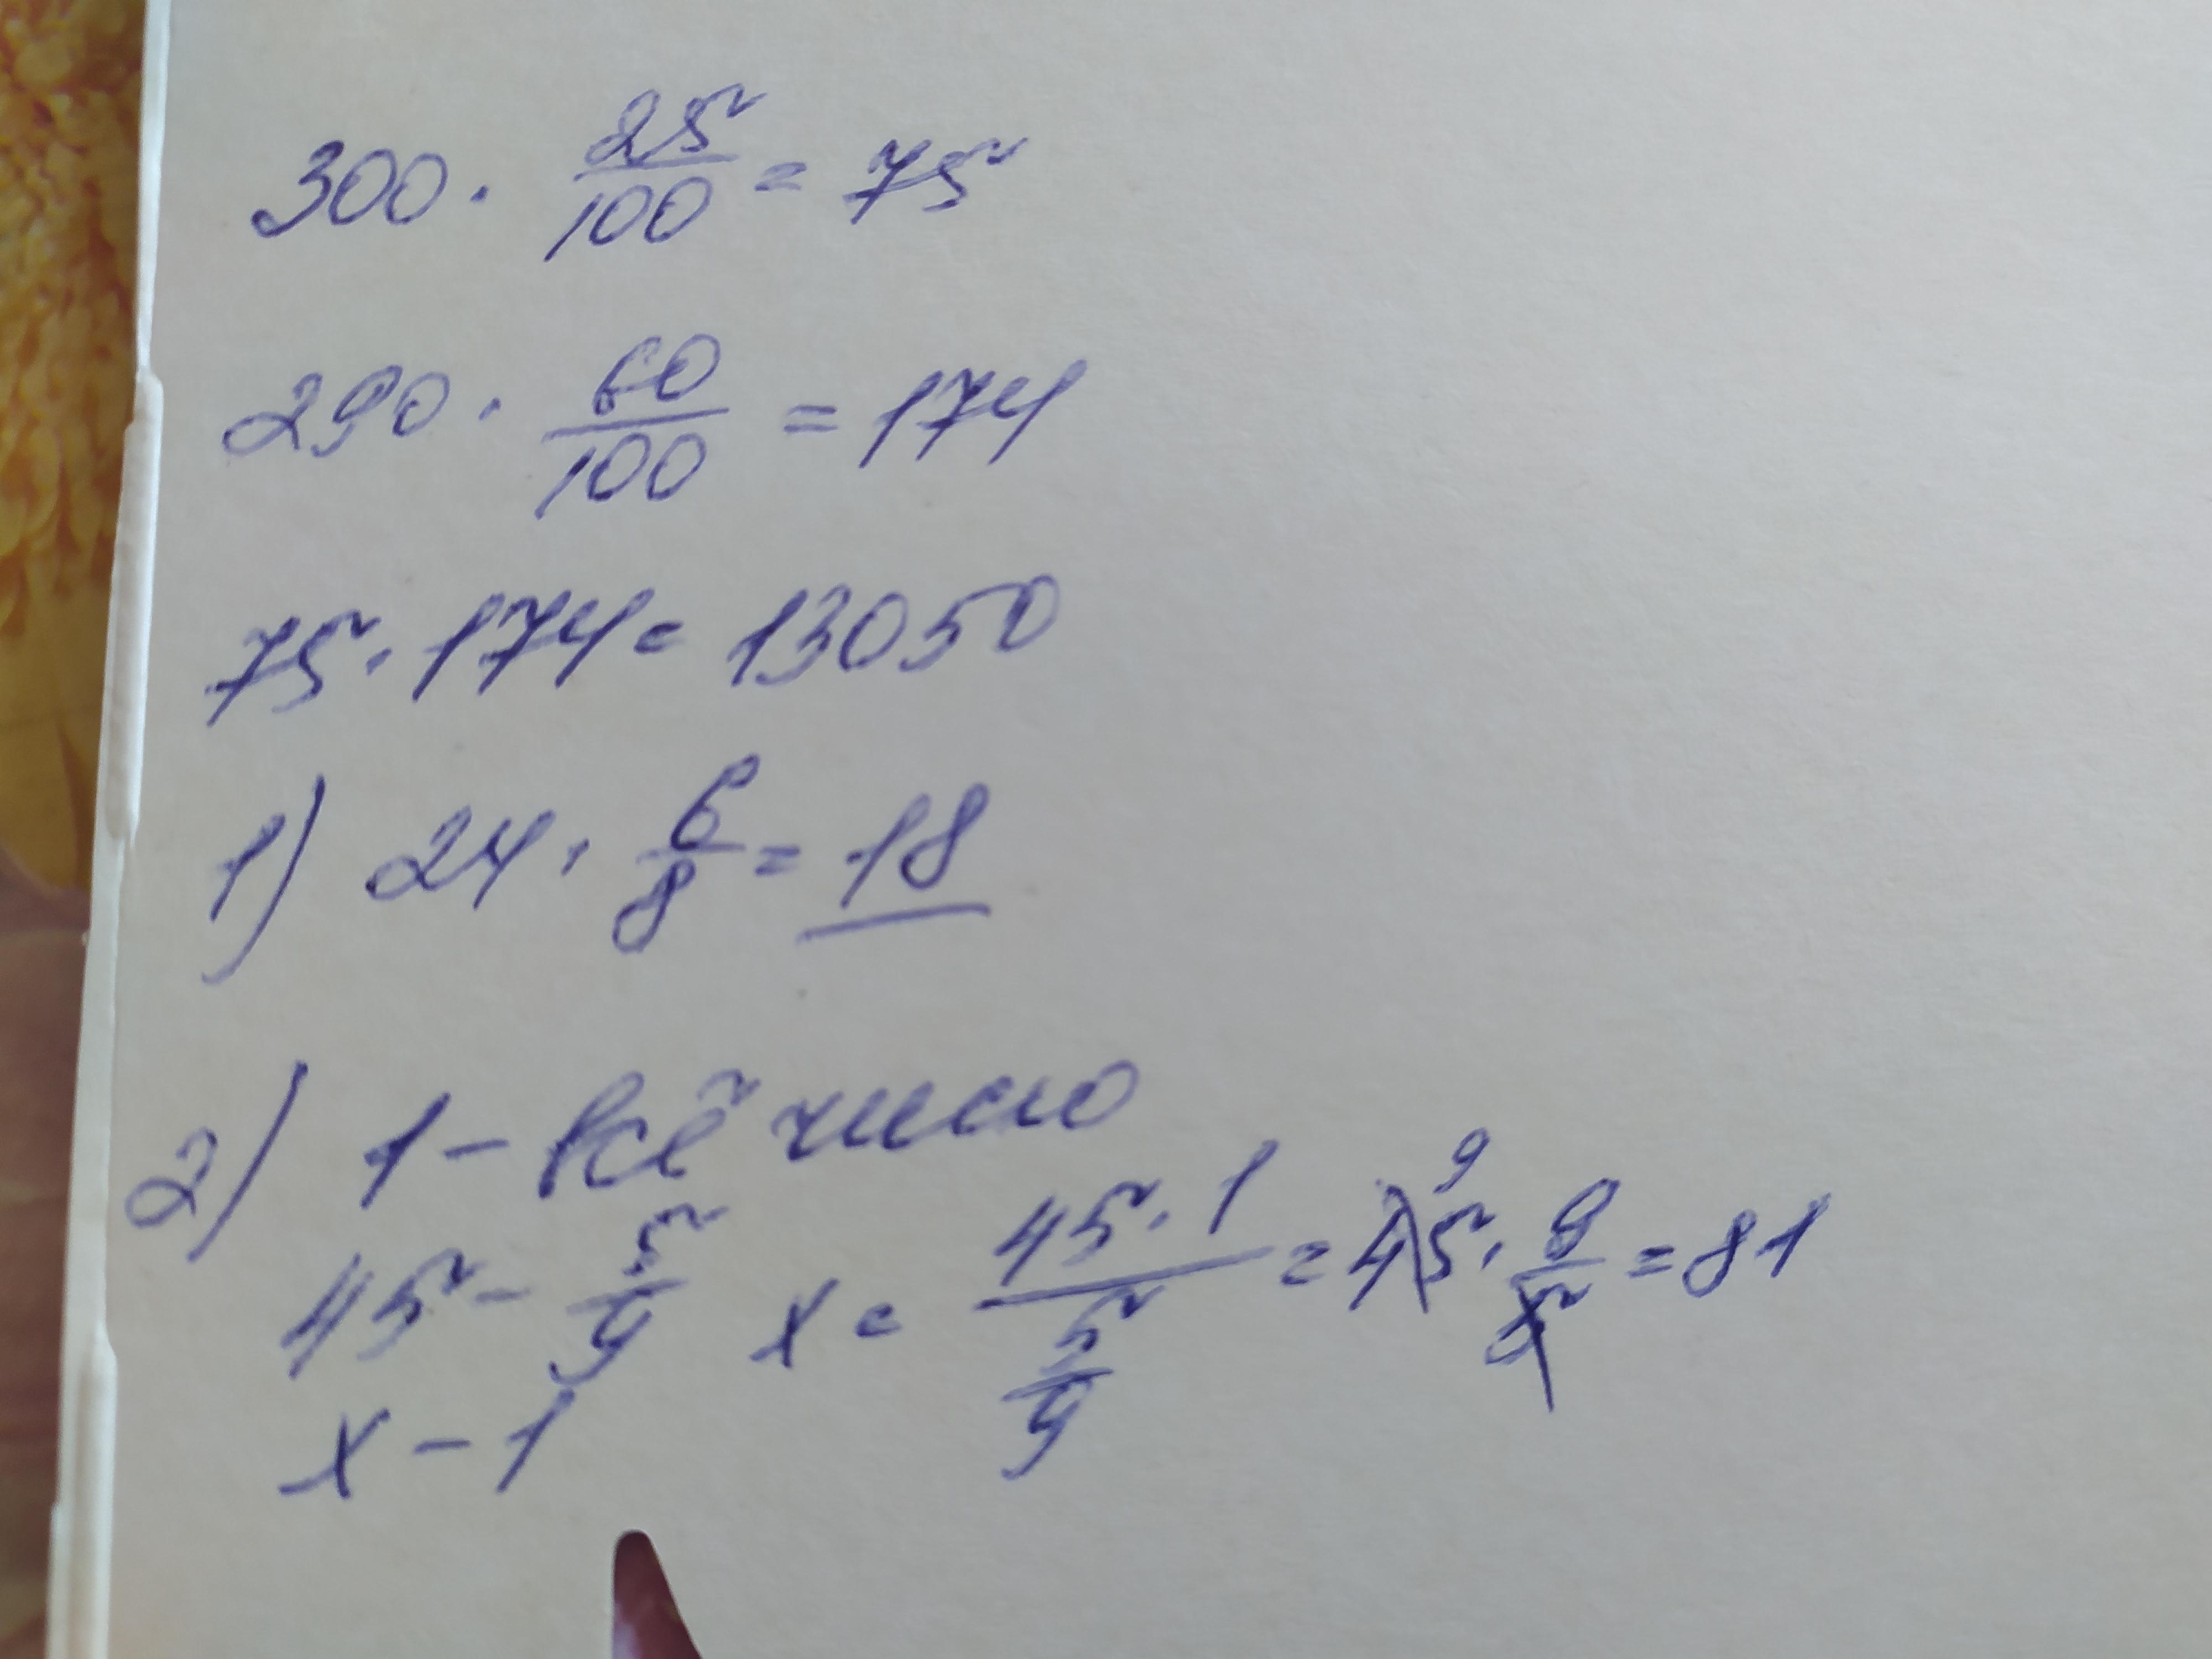 300 · 25/100 = 75
290 · 60/100 = 174
75 · 174 = 13050
1) 24 · 6/8 = 18
2) 1 - всё число
45 - 5/9 x = 45 · 1 / 5/9 = 45 9 · 9/5 = 81
x - 1